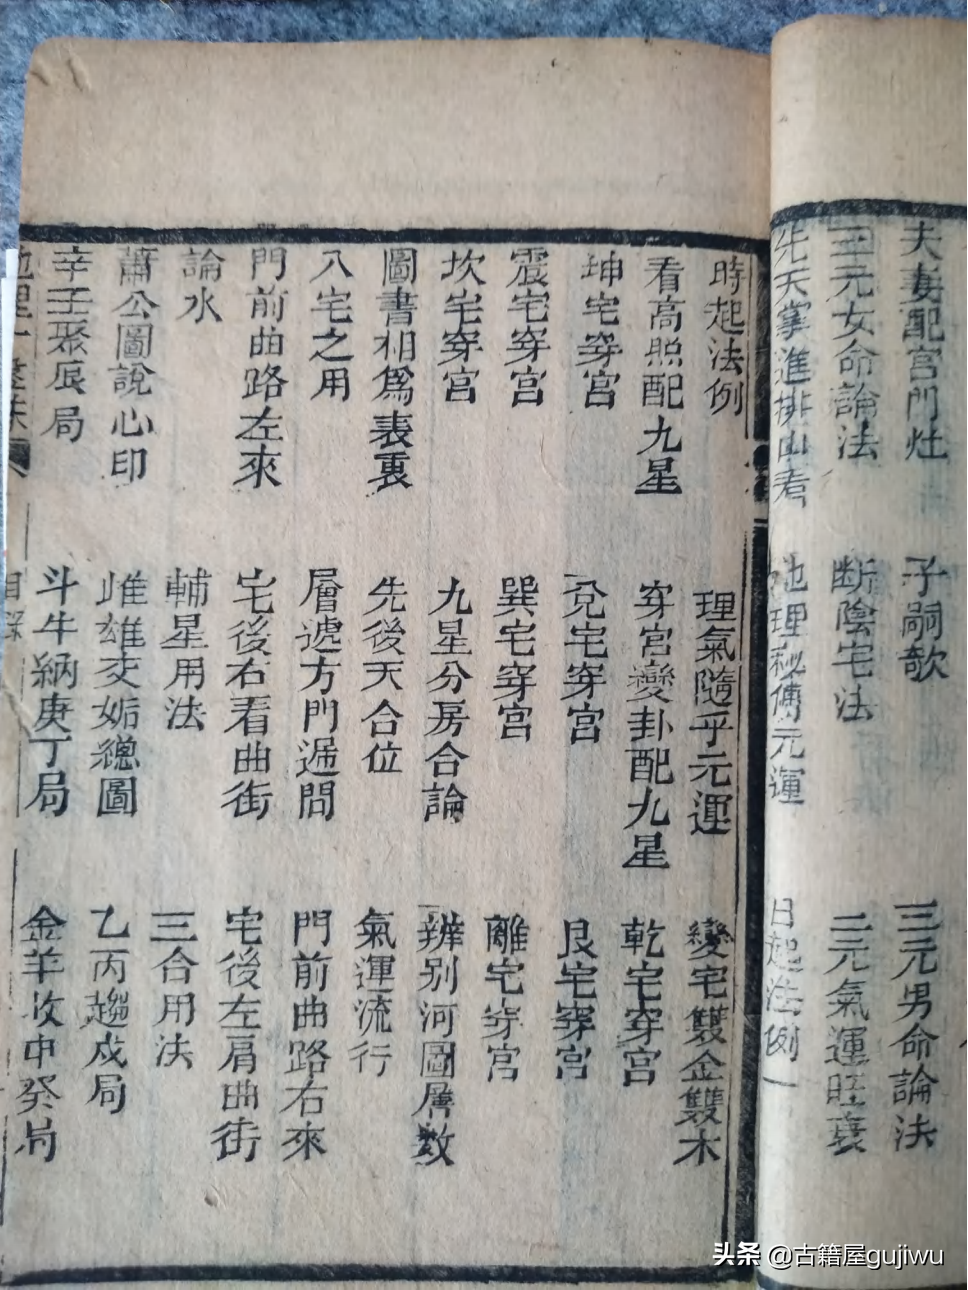 夫妻配宫門灶 子嗣歌 三元男命論法
三元女命論法 断陰宅法 二元氣運旺衰
先天掌進排山看 地理秘傳元運 日起法例
時起法例 理氣隨乎元運 變宅雙金雙木
看高照配九星 穿宮變卦配九星 乾宅穿宮
坤宅穿宮 兌宅穿宮 艮宅穿宮
震宅穿宮 巽宅穿宮 離宅穿宮
坎宅穿宮 九星分房合論 辨别河圖層数
圖書相為表裏 先後天合位 氣運流行
八宅之用 層遞方門遞問 門前曲路右來
門前曲路左來 宅後右看曲街 宅後左肩曲街
論水 輔星用法 三合用法
蕭公圖說心印 雌雄交姤總圖 乙丙趨戌局
辛壬聚辰局 斗牛納庚丁局 金羊收申癸局
地理
目録
头条 @古籍屋gujiwu